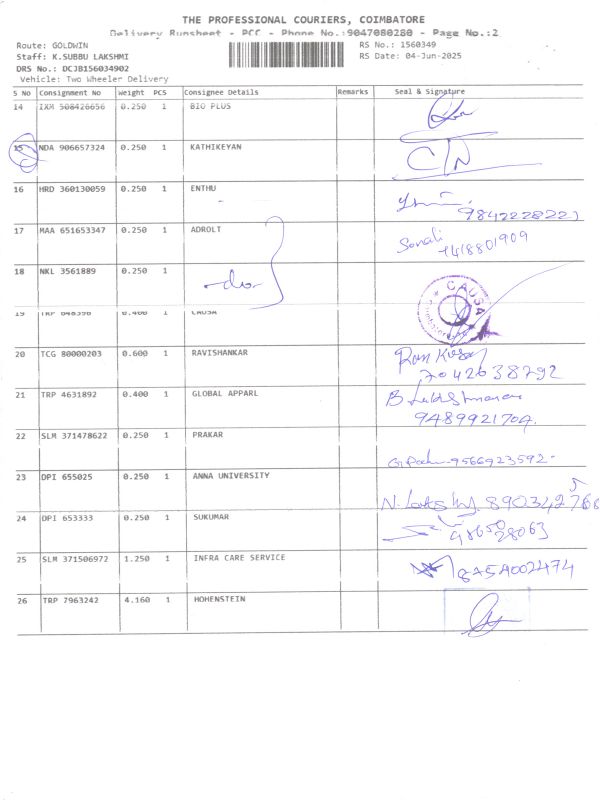 THE PROFESSIONAL COURIERS, COIMBATORE
Delivery Runsheet - PCC - Phone No.:9047080280 - Page No.:2
Route: GOLDWIN
RS No.: 1560349
Staff: K.SUBBU LAKSHMI
RS Date: 04-Jun-2025
DRS No.: DCJB156034902
Vehicle: Two Wheeler Delivery
S No Consignment No Weight PCS Consignee Details Remarks Seal & Signature
14 IXM 508426656 0.250 1 BIO PLUS
15 NDA 906657324 0.250 1 KATHIKEYAN
16 HRD 360130059 0.250 1 ENTHU
9842228223
17 MAA 651653347 0.250 1 ADROLT Sonali
7418801909
18 NKL 3561889 0.250 1 -do-
CAUSA
19 TRP 648396 0.400 1 CAUSA
20 TCG 80000203 0.600 1 RAVISHANKAR
7042638292
21 TRP 4631892 0.400 1 GLOBAL APPARL
9489921704.
22 SLM 371478622 0.250 1 PRAKAR
9566923592-
23 DPI 655025 0.250 1 ANNA UNIVERSITY
24 DPI 653333 0.250 1 SUKUMAR
98650
28063
25 SLM 371506972 1.250 1 INFRA CARE SERVICE
26 TRP 7963242 4.160 1 HOHENSTEIN